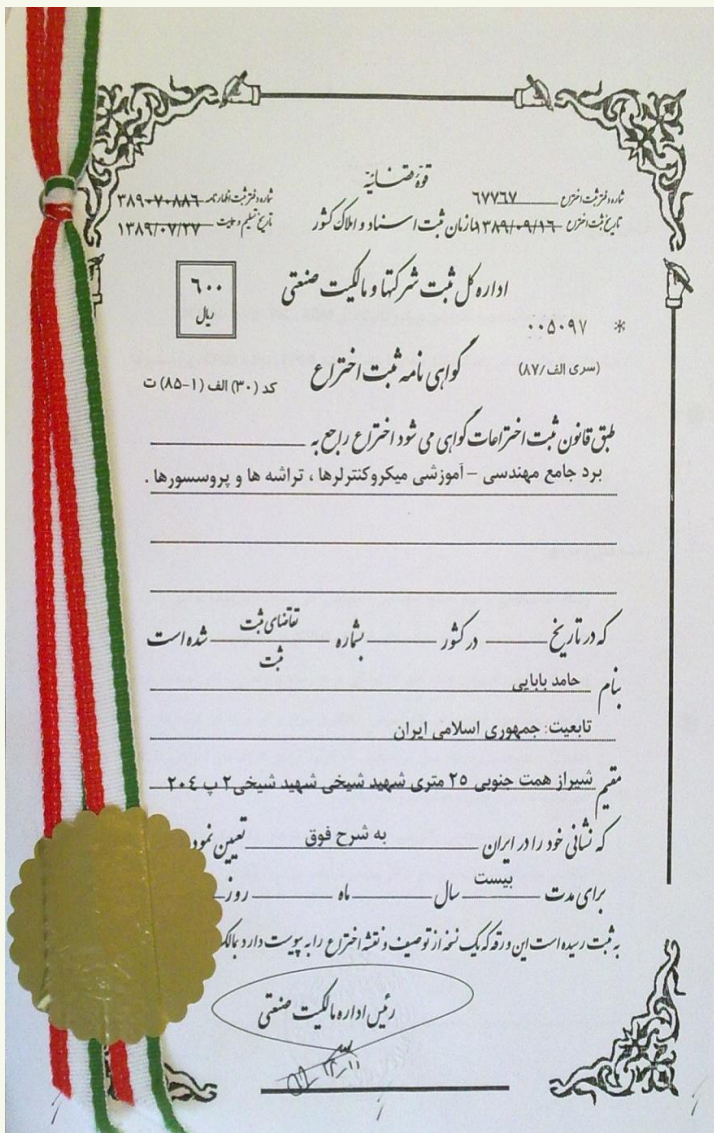 قوهٔ قضائیه
شماره دفتر ثبت اختراع ۶۷۷۶۷
شماره دفتر ثبت اظهارنامه ۳۸۹۰۷۰۸۸۶
تاریخ ثبت اختراع ۱۳۸۹/۰۹/۱۶
سازمان ثبت اسناد و املاک کشور
تاریخ تسلیم و هدایت ۱۳۸۹/۰۷/۲۷
اداره کل ثبت شرکتها و مالکیت صنعتی
۶۰۰
ریال
* ۰۰۵۰۹۷
(سری الف/۸۷)
گواهی نامه ثبت اختراع
کد (۳۰) الف (۱-۸۵) ت
طبق قانون ثبت اختراعات گواهی می شود اختراع راجع به
برد جامع مهندسی - آموزشی میکروکنترلرها ، تراشه ها و پروسسورها .
که در تاریخ در کشور بشماره تقاضای ثبت شده است
ثبت
بنام حامد بابایی
تابعیت: جمهوری اسلامی ایران
مقیم شیراز همت جنوبی ۲۵ متری شهید شیخی شهید شیخی۲ پ ۲۰۴
که نشانی خود را در ایران به شرح فوق تعیین نمود
برای مدت بیست سال ماه روز
به ثبت رسیده است این ورقه که یک نسخه از توصیف و نقشه اختراع را به پیوست دارد
رئیس اداره مالکیت صنعتی